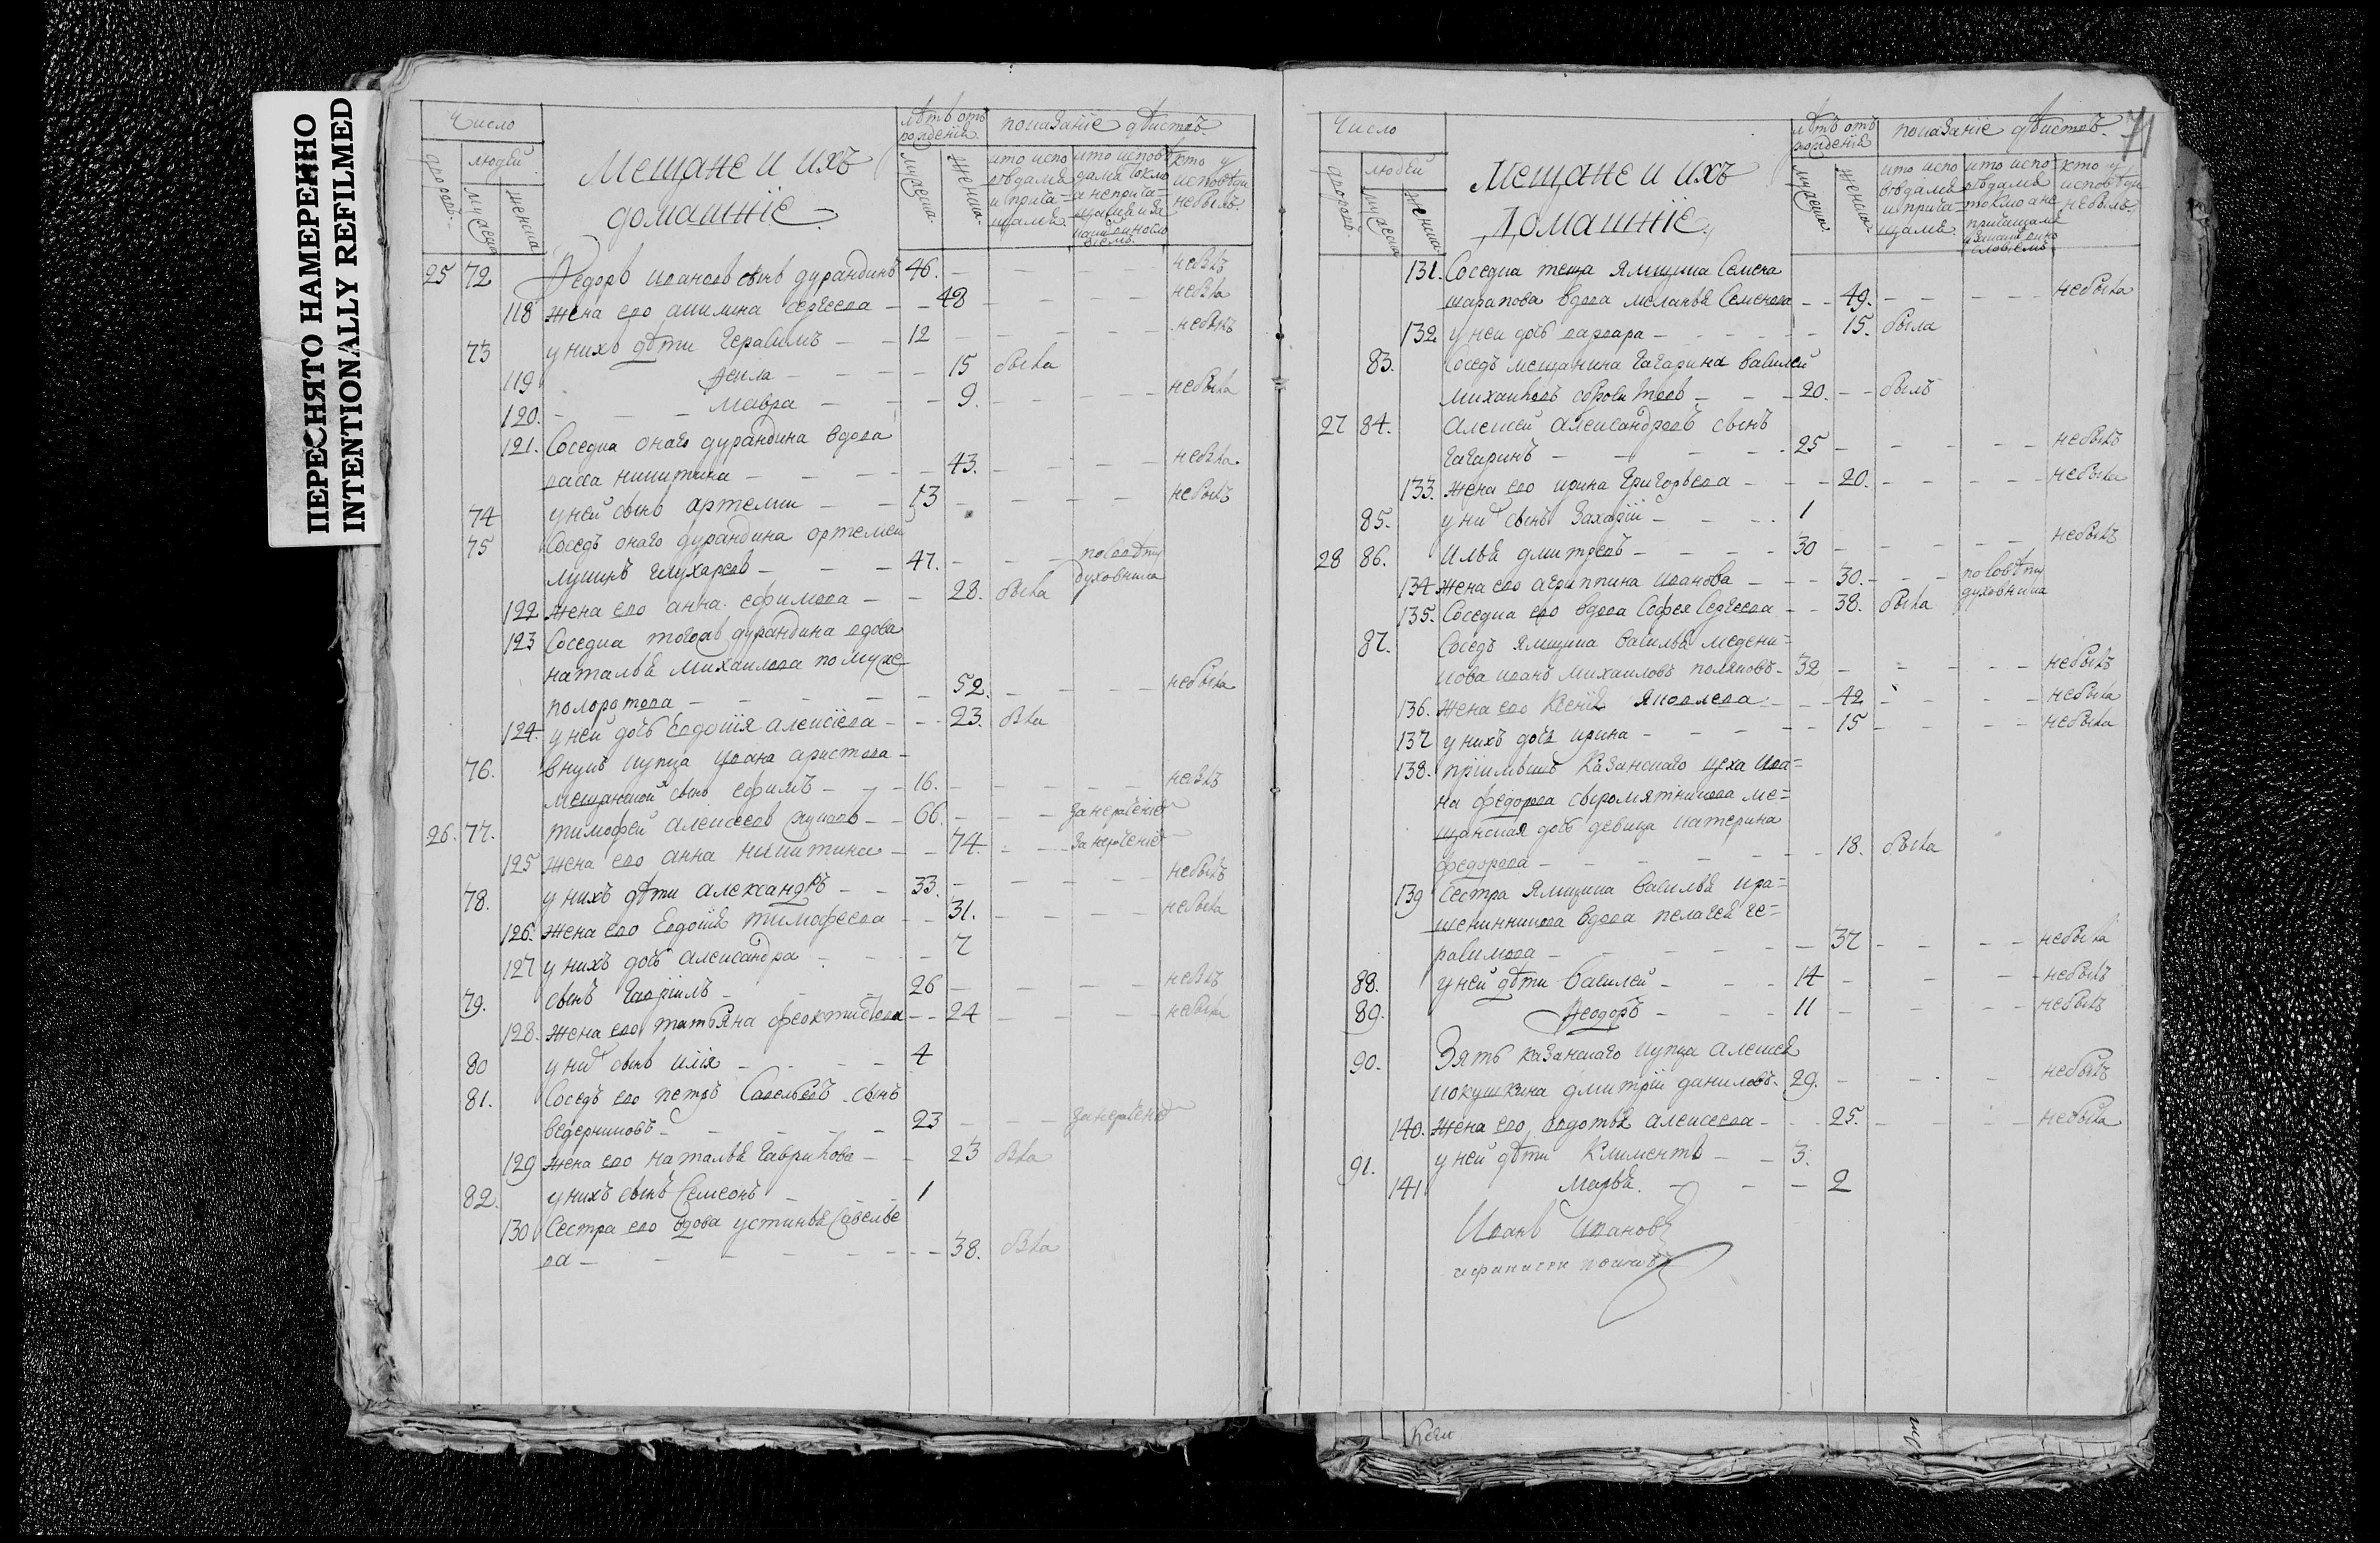 ПЕРЕСНЯТО НАМЕРЕННО
INTENTIONALLY REFILMED
Число
лѣтъ отъ рожденія
показаніе дѣйствъ.
дворовъ.
людей
мужеска
женска
Мещане и ихъ
домашніе
мужеска.
женска.
кто испо
вѣдался
и прича=
щался.
кто исповѣ
дался токмо
а неприча=
щался
кто у
исповѣди
небылъ.
25 72 Ѳедоръ ивановъ сынъ дурандинъ 46. небылъ
118 жена ево акилина сергеева 48 небыла
73 у нихъ дѣти Герасимъ 12 небылъ
119 Ѳекла 15 была
120. мавра 9. небыла
121. Соседка онаго дурандина вдова
васса никитина 43. небыла.
74 у ней сынъ артемии 13 небылъ
75 Соседъ онаго дурандина ортемей
лукинъ глухарево 47. посовѣту
духовника
122 жена ево анна ефимова 28. была
123 Соседка тогожъ дурандина вдова
наталья михаилова по муже
полоротова 52. небыла
124. у ней дочь Евдокія алексѣева 23. была
76. внукъ купца ивана аристова
мещанской сынъ ефимъ 16. небылъ
26. 77. тимофей алексеевъ 66. занерачениѣ
125 жена ево анна никитина 74. занерачениѣ
78. у нихъ дѣти александръ 33. небылъ
126. жена ево Евдокія тимофеева 31. небыла
127 у нихъ дочь александра 7
79. сынъ Гавріилъ 26 небылъ
128. жена ево татьяна феоктистова 24 небыла
80 у них сынъ илія 4
81. Соседъ ево петръ Савельевъ сынъ
ведерниковъ 23 занерачениѣ
129 жена ево наталья гаврилова 23 была
82. у нихъ сынъ Семеонъ 1
130 Сестра ево вдова устинья савелье
ва 38. была
Число
лѣтъ отъ рожденія
показаніе дѣйствъ.
дворовъ
людей
мужеска
женска
Мещане и ихъ
Домашніе.
мужеска
женска
кто испо
вѣдался
и прича=
щался.
кто испо
вѣдался
токмо а не
причащался
кто у
исповѣди
небылъ.
131. Соседка теща ямщика Семена
шарапова вдова меланья Семенова 49. небыла
132 у ней дочь варвара 15. была
83. Соседъ мещанина гагарина василей
михаиловъ 20. былъ
27 84. алексей александровъ сынъ
гагаринъ 25 небылъ
133. жена ево ирина григорьева 20. небыла
85. у них сынъ Захарій 1
28 86. илья дмитревъ 30 небылъ
134 жена ево агриппина иванова 30. посовѣту
духовника
135. Соседка ево вдова Софея Сергеева 38. была
87. Соседъ ямщика василья медени=
кова иванъ михаиловъ поляковъ 32 небылъ
136. жена ево ксенія яковлева 42 небыла
137 у нихъ дочь ирина 15 небыла
138. пріимышъ казанскаго цеха ива=
на федорова сыромятникова ме=
щанская дочь девица катерина
федорова 18. была
139 Сестра ямщика василья кра=
шенинникова вдова пелагея ге=
расимова 37 небыла
88. у ней дѣти василей 14 небылъ
89. Ѳеодоръ 11 небылъ
90. Зять казанскаго купца алексея
кокушкина дмитрій даниловъ. 29. небылъ
140. жена ево авдотья алексеева 25. небыла
91. у ней дѣти климентъ 3.
141 марья. 2
Иванъ Ивановъ